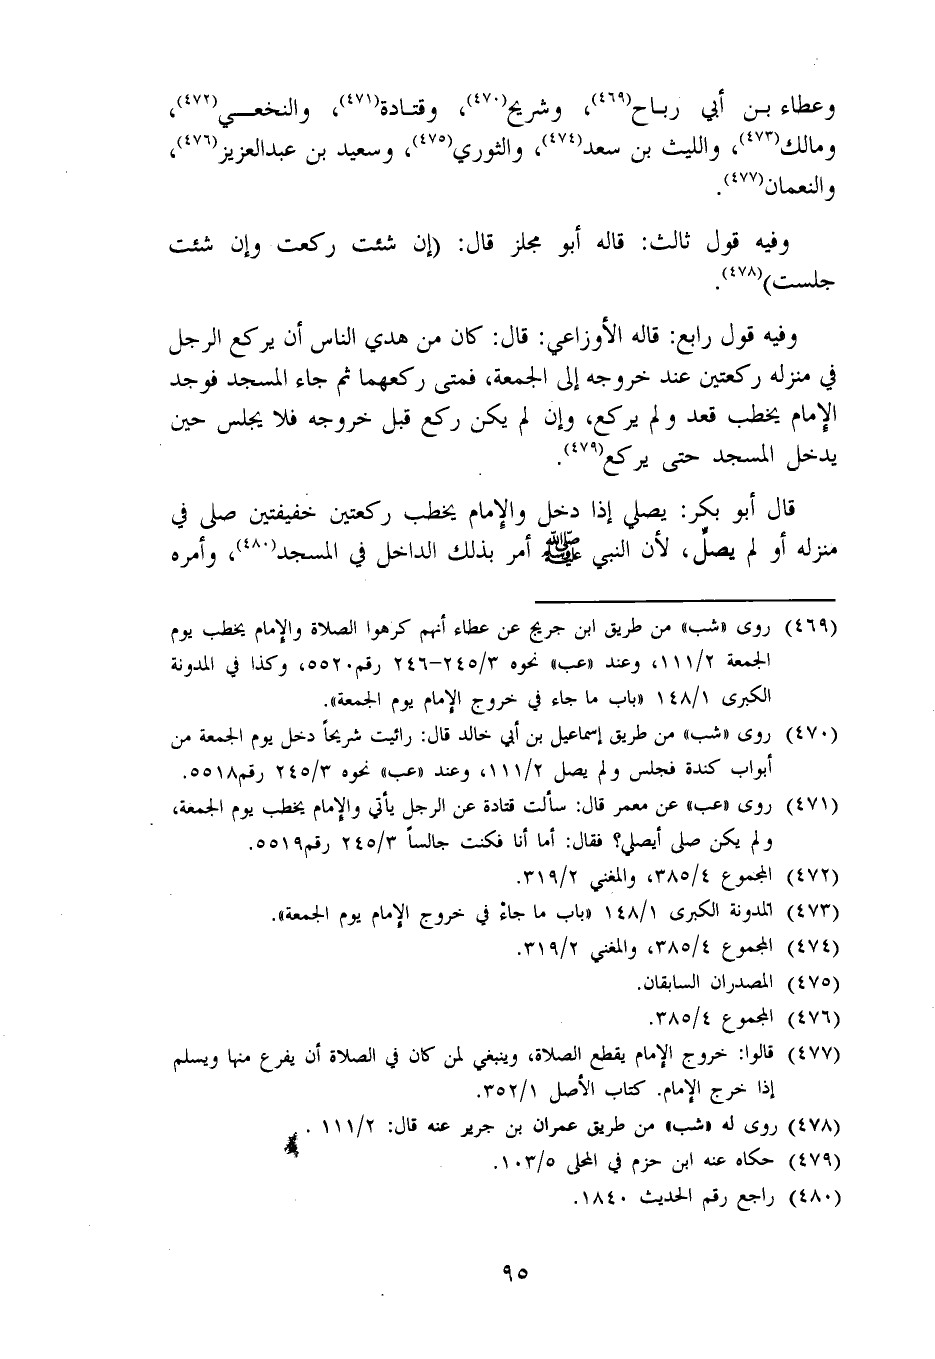 وعطاء بـن أبي ربـاح(٤٦٩)، وشريح(٤٧٠)، وقتـادة(٤٧١)، والنخعـــي(٤٧٢)،
ومالك(٤٧٣)، والليث بن سعد(٤٧٤)، والثوري(٤٧٥)، وسعيد بن عبدالعزيز(٤٧٦)،
والنعمان(٤٧٧).
وفيه قول ثالث: قاله أبو مجلز قال: (إن شئت ركعت وإن شئت
جلست)(٤٧٨).
وفيه قول رابع: قاله الأوزاعي: قال: كان من هدي الناس أن يركع الرجل
في منزله ركعتين عند خروجه إلى الجمعة، فمتى ركعهما ثم جاء المسجد فوجد
الإمام يخطب قعد ولم يركع، وإن لم يكن ركع قبل خروجه فلا يجلس حين
يدخل المسجد حتى يركع(٤٧٩).
قال أبو بكر: يصلي إذا دخل والإمام يخطب ركعتين خفيفتين صلى في
منزله أو لم يصلّ، لأن النبي ﷺ أمر بذلك الداخل في المسجد(٤٨٠)، وأمره
(٤٦٩) روى «شب» من طريق ابن جريج عن عطاء أنهم كرهوا الصلاة والإمام يخطب يوم
الجمعة ١١١/٢، وعند «عب» نحوه ٢٤٥/٣-٢٤٦ رقم٥٥٢٠، وكذا في المدونة
الكبرى ١٤٨/١ «باب ما جاء في خروج الإمام يوم الجمعة».
(٤٧٠) روى «شب» من طريق إسماعيل بن أبي خالد قال: رائيت شريحاً دخل يوم الجمعة من
أبواب كندة فجلس ولم يصل ١١١/٢، وعند «عب» نحوه ٢٤٥/٣ رقم٥٥١٨.
(٤٧١) روى «عب» عن معمر قال: سألت قتادة عن الرجل يأتي والإمام يخطب يوم الجمعة،
ولم يكن صلى أيصلي؟ فقال: أما أنا فكنت جالساً ٢٤٥/٣ رقم٥٥١٩.
(٤٧٢) المجموع ٣٨٥/٤، والمغني ٣١٩/٢.
(٤٧٣) المدونة الكبرى ١٤٨/١ «باب ما جاءْ في خروج الإمام يوم الجمعة».
(٤٧٤) المجموع ٣٨٥/٤، والمغني ٣١٩/٢.
(٤٧٥) المصدران السابقان.
(٤٧٦) المجموع ٣٨٥/٤.
(٤٧٧) قالوا: خروج الإمام يقطع الصلاة، وينبغي لمن كان في الصلاة أن يفرع منها ويسلم
إذا خرج الإمام. كتاب الأصل ٣٥٢/١.
(٤٧٨) روى له «شب» من طريق عمران بن جرير عنه قال: ١١١/٢ .
(٤٧٩) حكاه عنه ابن حزم في المحلى ١٠٣/٥.
(٤٨٠) راجع رقم الحديث ١٨٤٠.
٩٥